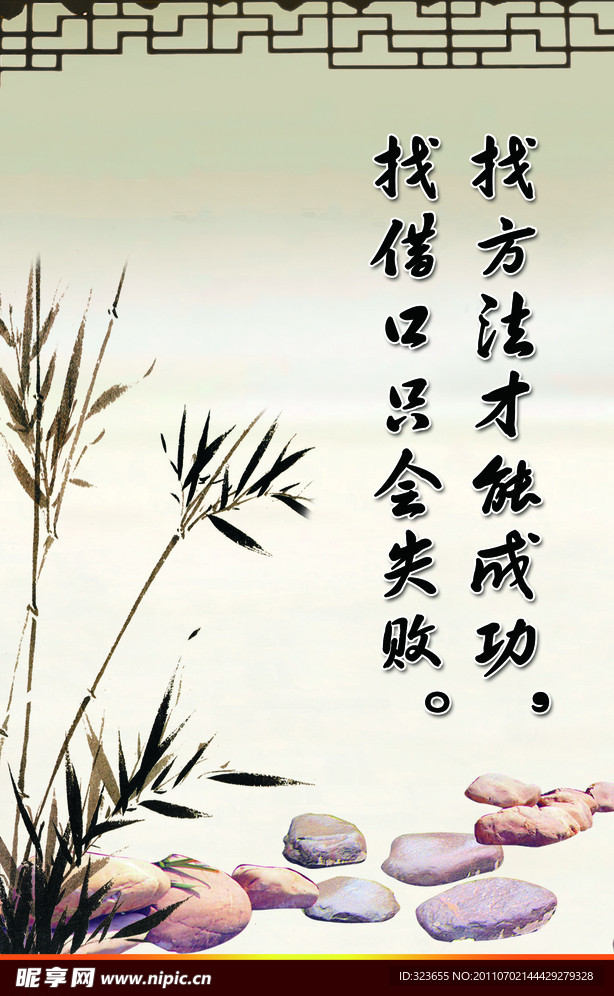 找方法才能成功，
找借口只会失败。
昵享网 www.nipic.cn
ID:323655 NO:20110702144429279328